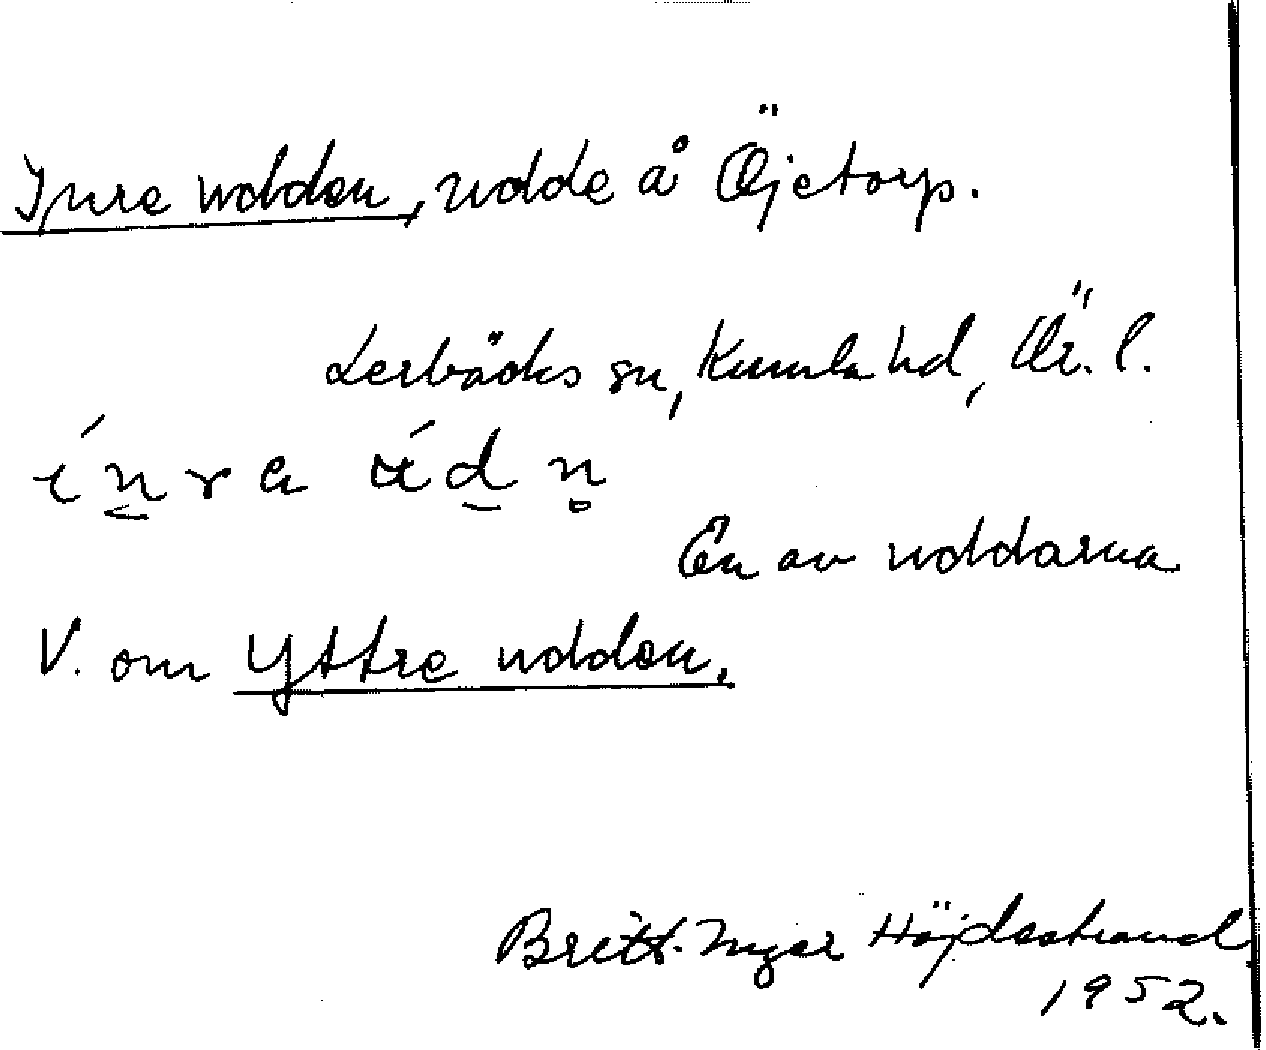 Inre udden, udde å Öjetorp.
Lerbäcks sn, Kumla hd, Ör. l.
ínra údn
En av uddarna
V. om Yttre udden.
Britt-Inger Höjdestrand
1952.